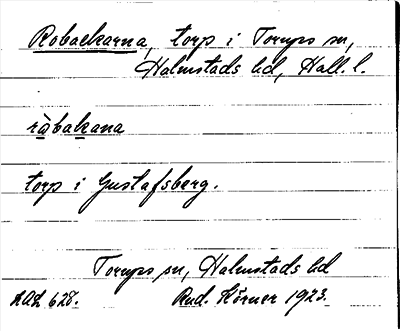 Robackarna, torp i Torups sn,
Halmstads hd, Hall. l.
råbakana
torp i Gustafsberg.
Torups sn, Halmstads hd
Rud. Körner 1923.